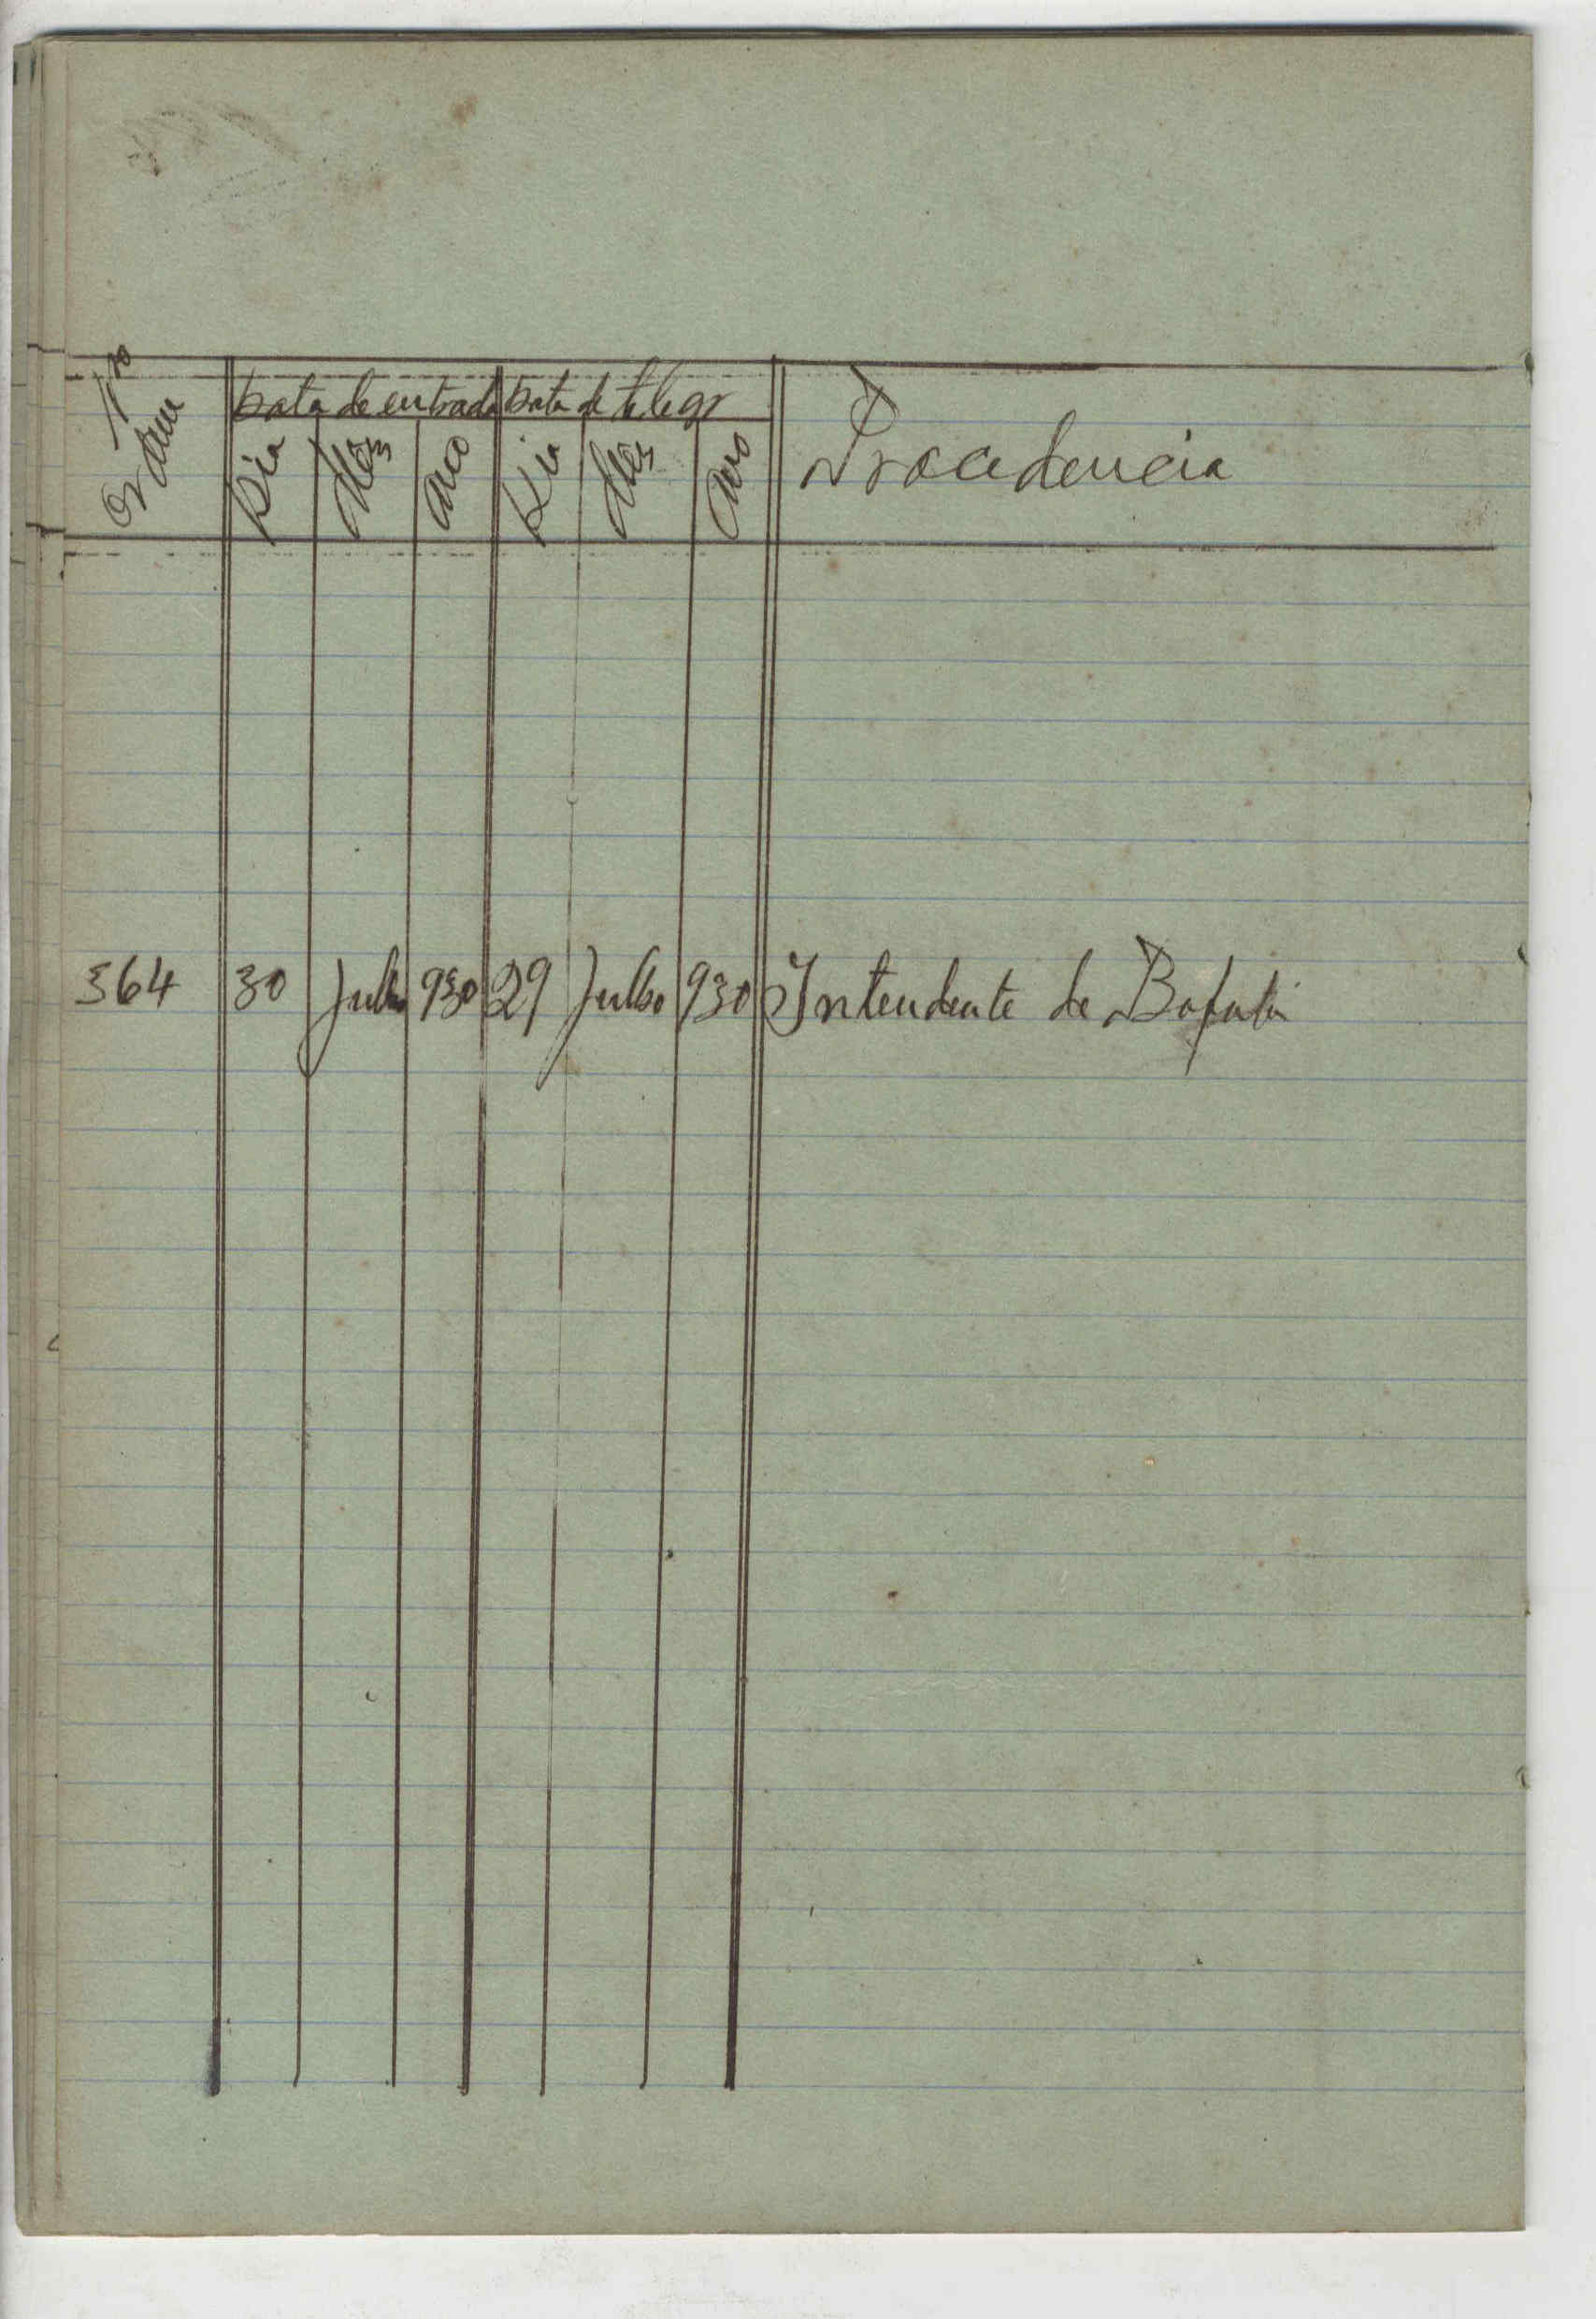 Nº Ordem
Data de entrada Data de telegr Procedencia
Dia Mês Ano Dia Mês Ano
364 30 Julho 930 29 Julho 930 Intendente de Bafatá